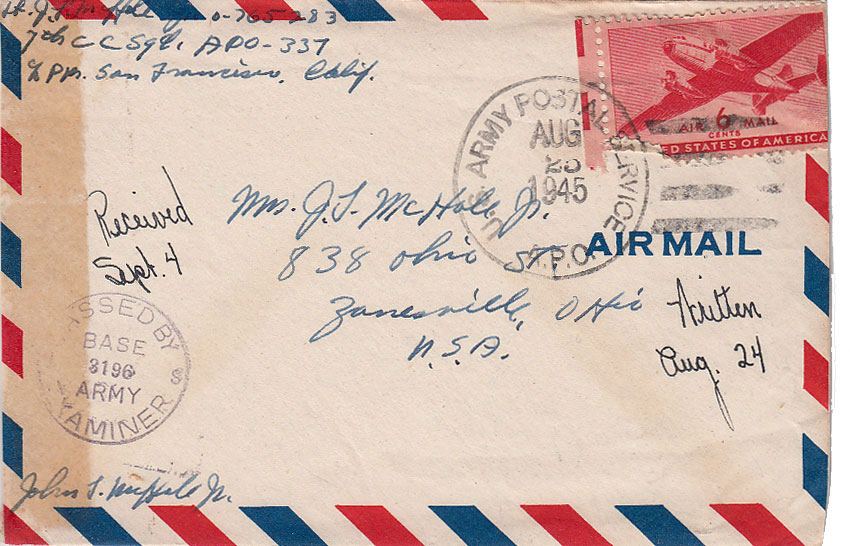 Lt. J. T. McHole Jr. 0-765283
7th C C Sqd. APO-337
% P.M. San Francisco, Calif.
AIR 6 MAIL
CENTS
ED STATES OF AMERICA
U.S. ARMY POSTAL SERVICE
AUG
1945
A.P.O.
AIR MAIL
Received
Sept. 4
Mrs. J. T. McHole Jr.
838 Ohio St.
Zanesville, Ohio
U.S.A.
Written
Aug. 24
ASSED BY
BASE
3196
ARMY
EXAMINER S
John T. McHole Jr.